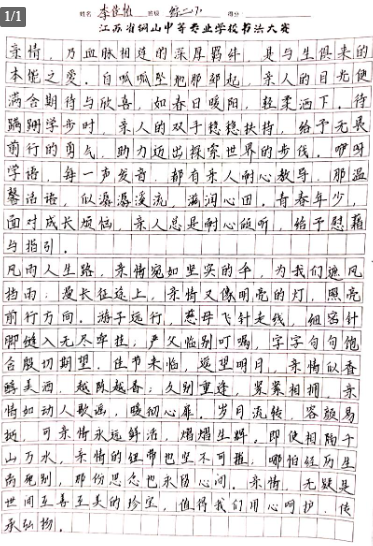 1/1
姓名 班级 得分
江苏省铜山中等专业学校书法大赛
亲情，乃血脉相连的深厚羁绊，是与生俱来的
本能之爱。自呱呱坠地那刻起，亲人的目光便
满含期待与欣喜，如春日暖阳，轻柔洒下。待
蹒跚学步时，亲人的双手稳稳扶持，给予无畏
前行的勇气，助力迈出探索世界的步伐。咿呀
学语，每一声发音，都有亲人耐心教导，那温
馨话语，似潺潺溪流，满润心田。青春年少，
面对成长烦恼，亲人总是耐心倾听，给予慰藉
与指引。
风雨人生路，亲情宛如坚实的伞，为我们遮风
挡雨；漫长征途上，亲情又像明亮的灯，照亮
前行方向。游子远行，慈母飞针走线，细密针
脚缝入无尽牵挂；严父临别叮嘱，字字句句饱
含殷切期望。佳节来临，遥望明月，亲情似香
醇美酒，越陈越香；久别重逢，紧紧相拥，亲
情如动人歌谣，暖彻心扉。岁月流转，容颜易
逝，可亲情永远鲜活，熠熠生辉。即使相隔千
山万水，亲情的纽带也坚不可摧。哪怕经历生
离死别，那份思念也永留心间。亲情，无疑是
世间至善至美的珍宝，值得我们用心呵护，传
承弘扬。